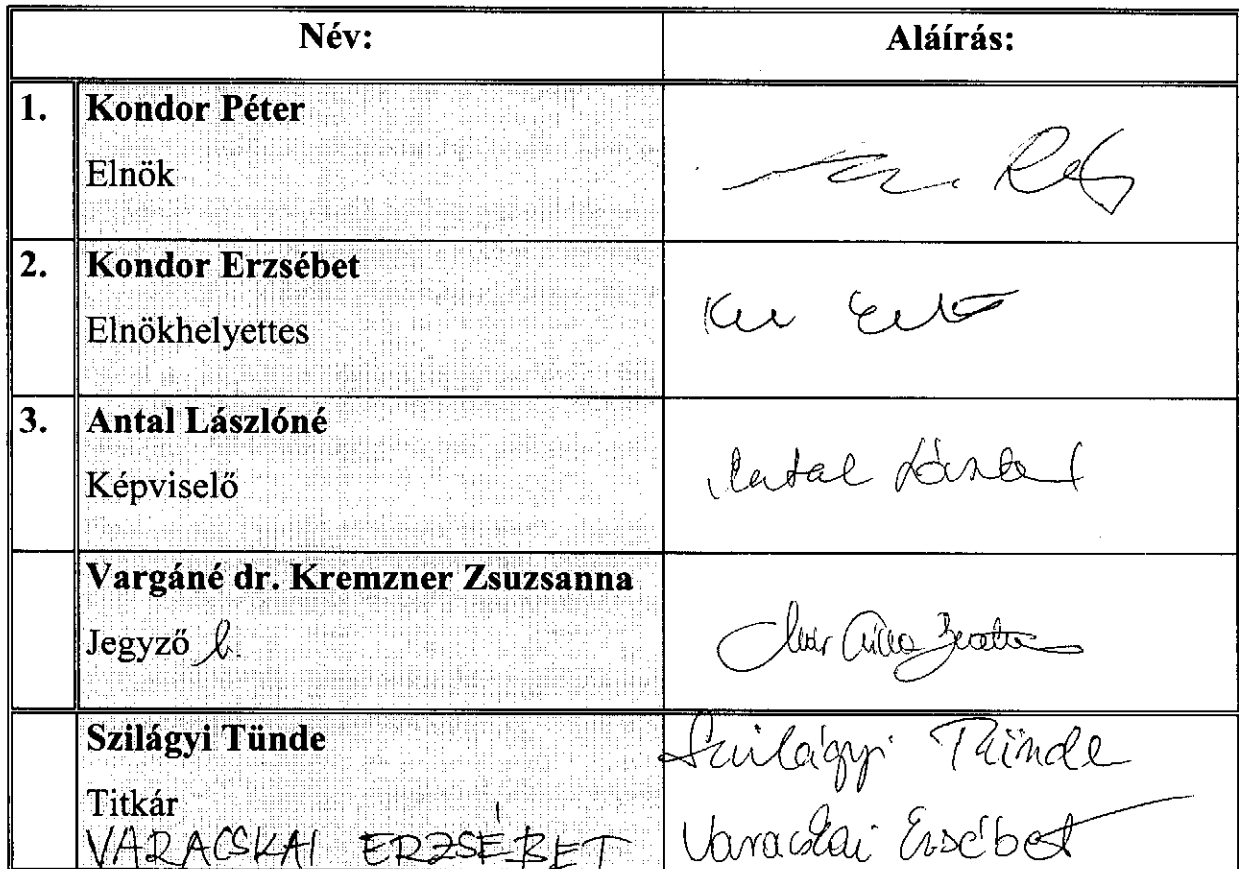 Név: Aláírás:
1. Kondor Péter
Elnök
2. Kondor Erzsébet
Elnökhelyettes
3. Antal Lászlóné
Képviselő
Antal
Vargáné dr. Kremzner Zsuzsanna
Jegyző h.
Szilágyi Tünde Szilágyi Tünde
Titkár
VARACSKAI ERZSÉBET Varacskai Erzsébet